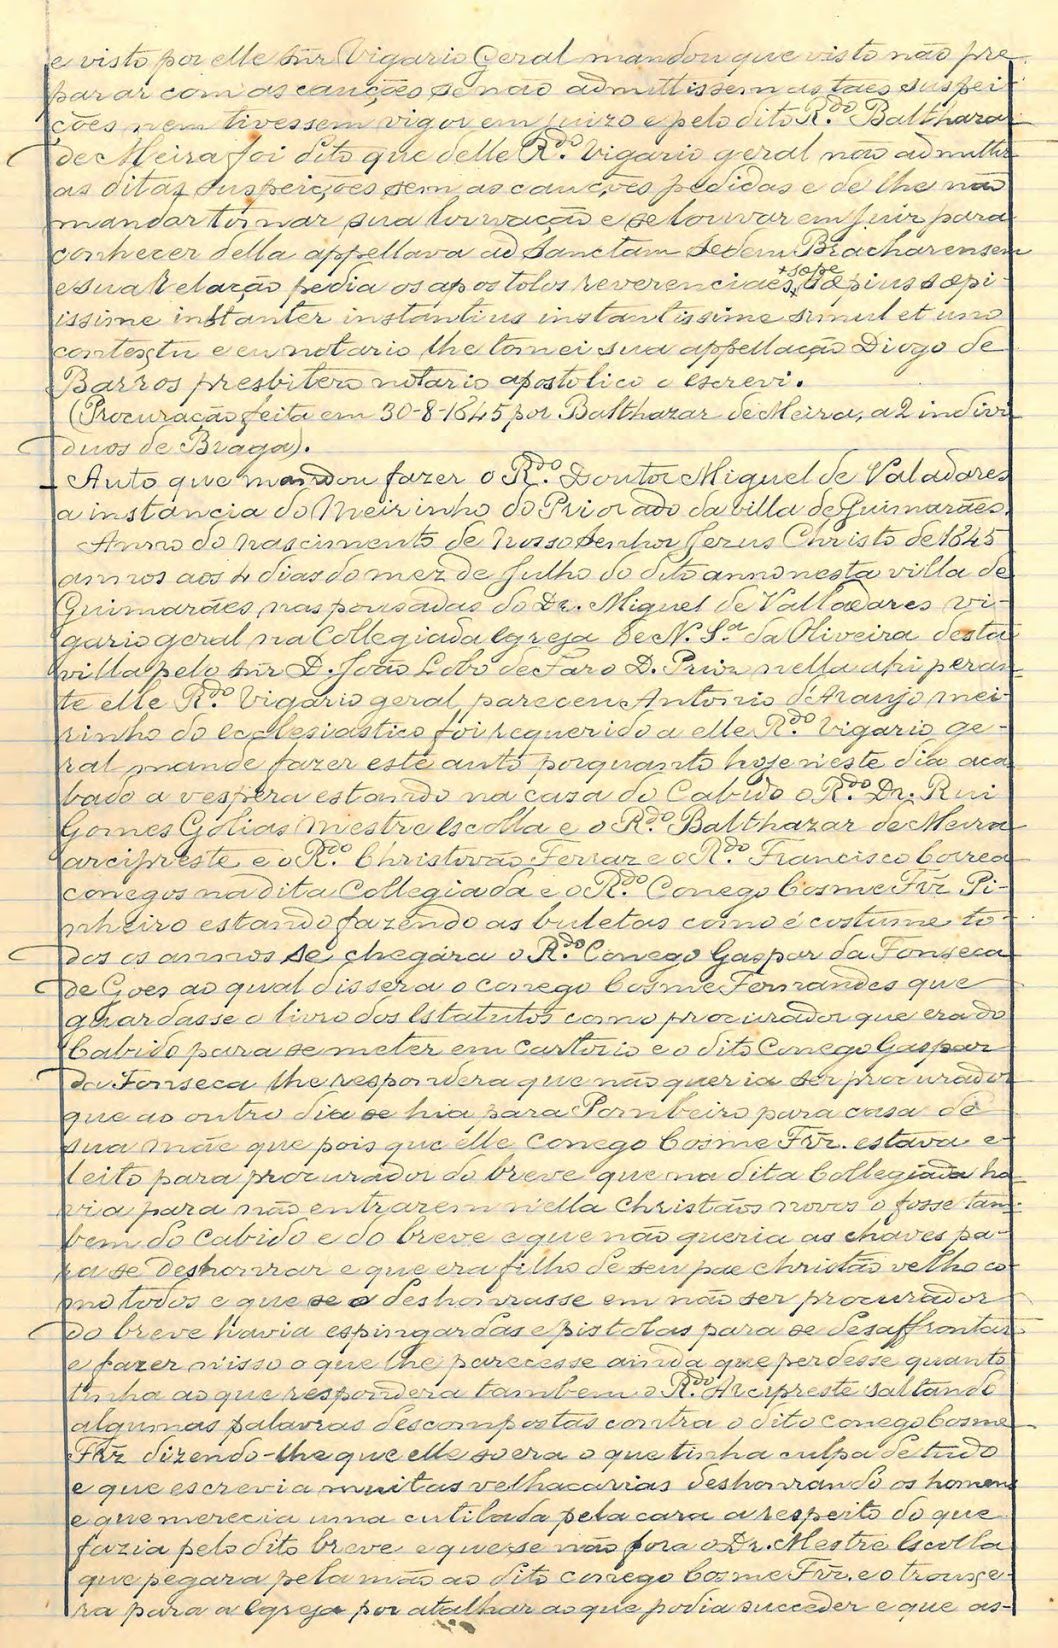 e visto por elle snr Vigario Geral mandou que visto não pre-
parar com as cauções se não admittissem as taes suspei-
ções nem tivessem vigor em juizo e pelo dito R.do Balthazar
de Meira foi dito que delle R.do Vigario geral não admittir
as ditas suspeições sem as cauções pedidas e de lhe não
mandar tomar sua louvação e se louvar em juiz para
conhecer della appellava ad Sanctam Sedem Bracharensem
e sua Relação pedia os apostolos reverenciaes +sæpe sæpius sæpi-
issime instanter instantius instantissime simul et uno
contextu e eu notario lhe tomei sua appellação Diogo de
Barros presbitero notario apostolico o escrevi.
(Procuração feita em 30-8-1645 por Balthazar de Meira, a 2 indivi-
duos de Braga).
Auto que mandou fazer o R.do Doutor Miguel de Valadares
a instancia do Meirinho do Priorado da villa de Guimarães.
Anno do Nascimento de Nosso Senhor Jezus Christo de 1645
annos aos 4 dias do mez de Julho do dito anno nesta villa de
Guimarães, nas pousadas do Dr. Miguel de Valladares vi-
gario geral na Collegiada Egreja de N. S.a da Oliveira desta
villa pelo snr D. João Lobo de Faro D. Prior nella ahi peran-
te elle R.do Vigario geral pareceu Antonio d'Araujo mei-
rinho do ecclesiastico foi requerido a elle R.do Vigario ge-
ral mande fazer este auto porquanto hoje n'este dia aca-
bado a vespera estando na casa do Cabido o R.do Dr. Rui
Gomes Golias Mestre Escolla e o R.do Balthazar de Meira
arcipreste e o R.do Christovão Ferraz e o R.do Francisco Correa
conegos na dita Collegiada e o R.do Conego Cosme Frz Pi-
nheiro estando fazendo as buletas como é costume to-
dos os annos se chegára o R.do Conego Gaspar da Fonseca
de Goes ao qual dissera o conego Cosme Fernandes que
guardasse o livro dos Estatutos como procurador que era do
Cabido para se meter em Cartorio e o dito Conego Gaspar
da Fonseca lhe respondera que não queria ser procurador
que ao outro dia se hia para Pombeiro para casa de
sua mãe que pois que elle Conego Cosme Frz. estava e-
leito para procurador do breve que na dita Collegiada ha-
via para não entrarem n'ella Christãos novos o fosse tam-
bem do Cabido e do breve e que não queria as chaves pa-
ra se deshonrar e que era filho de seu pae christão velho co-
mo todos e que se o deshonrasse em não ser procurador
do breve havia espingardas e pistolas para se desaffrontar
e fazer n'isso o que lhe parecesse ainda que perdesse quanto
tinha ao que respondera tambem o R.do Arcipreste saltando
algumas palavras descompostas contra o dito conego Cosme
Frz dizendo-lhe que elle so era o que tinha culpa de tudo
e que escrevia muitas velhacarias deshonrando os homens
e que merecia uma cutilada pela cara a respeito do que
fazia pelo dito breve e que se não fora o Dr. Mestre Escolla
que pegara pela mão ao dito conego Cosme Frz. e o trouxe-
ra para a Egreja por atalhar ao que podia succeder e que as-